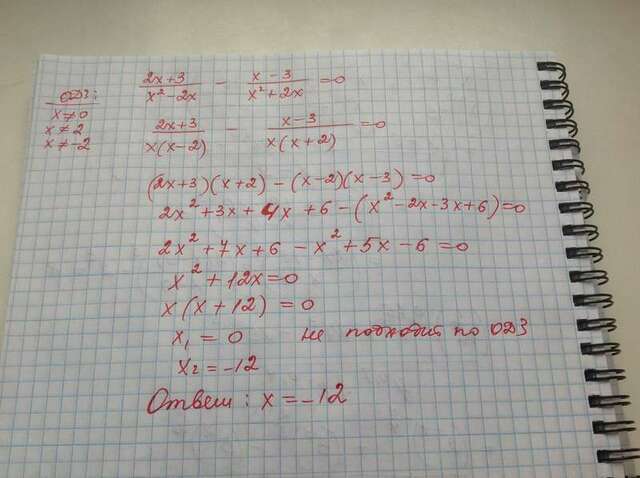 ОДЗ:
x≠0
x≠2
x≠-2
(2x+3)/(x²-2x) - (x-3)/(x²+2x) =0
(2x+3)/(x(x-2)) - (x-3)/(x(x+2)) =0
(2x+3)(x+2)-(x-2)(x-3)=0
2x²+3x+4x+6-(x²-2x-3x+6)=0
2x²+7x+6-x²+5x-6=0
x²+12x=0
x(x+12)=0
x₁=0 не подходит по ОДЗ
x₂=-12
Ответ: x=-12